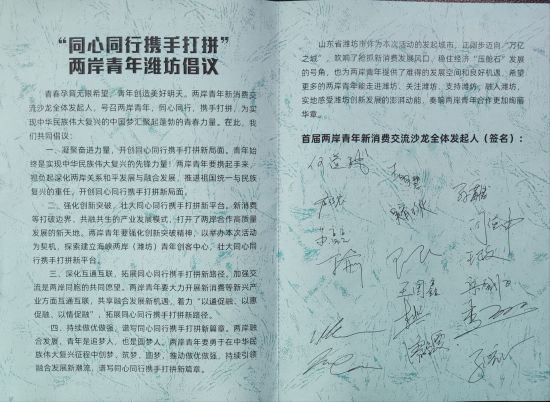 “同心同行携手打拼”
两岸青年潍坊倡议
青春孕育无限希望，青年创造美好明天。两岸青年新消费交
流沙龙全体发起人，号召两岸青年，同心同行，携手打拼，为实
现中华民族伟大复兴的中国梦汇聚起蓬勃的青春力量。在此，我
们共同倡议：
一、凝聚奋进力量，开创同心同行携手打拼新局面。青年始
终是实现中华民族伟大复兴的先锋力量！两岸青年要携起手来，
担负起深化两岸关系和平发展与融合发展、推进祖国统一与民族
复兴的重任，开创同心同行携手打拼新局面。
二、强化创新突破，壮大同心同行携手打拼新平台。新消费
等打破边界、共融共生的产业发展模式，打开了两岸合作高质量
发展的新天地。两岸青年要强化创新突破精神，以举办本次活动
为契机，探索建立海峡两岸（潍坊）青年创客中心，壮大同心同
行携手打拼新平台。
三、深化互通互联，拓展同心同行携手打拼新路径。加强交
流是两岸同胞的共同愿望。两岸青年要大力开展新消费等新兴产
业方面互通互联，共享融合发展新机遇，着力“以通促融、以惠
促融、以情促融”，拓展同心同行携手打拼新路径。
四、持续做优做强，谱写同心同行携手打拼新篇章。两岸融
合发展，青年是追梦人，也是圆梦人。两岸青年要勇于在中华民
族伟大复兴征程中创梦，筑梦，圆梦，推动做优做强，持续引领
融合发展新潮流，谱写同心同行携手打拼新篇章。
山东省潍坊市作为本次活动的发起城市，正阔步迈向“万亿
之城”，吹响了抢抓新消费发展风口，稳住经济“压舱石”发展
的号角，也为两岸青年提供了难得的发展空间和良好机遇，希望
更多的两岸青年能走进潍坊、关注潍坊、支持潍坊、融入潍坊，
实地感受潍坊创新发展的澎湃动能，奏响两岸青年合作更加绚丽
华章。
首届两岸青年新消费交流沙龙全体发起人（签名）：